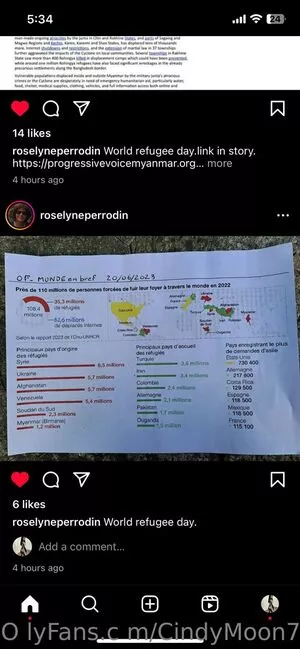 5:34
24
man-made ongoing atrocities by the junta in Chin and Rakhine States, and parts of Sagaing and
Magwe Regions and Karen, Karenni and Shan States, has displaced tens of thousands
more. Internet shutdowns and restrictions, and the extension of martial law in 37 townships
further aggravates the impacts of the Cyclone on local communities. Several Townships in Rakhine
State saw more than 400 Rohingya killed in displacement camps which could have been prevented,
while around one million Rohingya refugees have also faced significant wreckages in the already
precarious settlements along the Bangladesh border.
Vulnerable populations displaced inside and outside Myanmar by the military junta's atrocious
crimes or the Cyclone are desperately in need of emergency humanitarian aid, particularly water,
food, shelter, medical supplies, clothing, vehicles, and full information access both online and
14 likes
roselyneperrodin World refugee day.link in story.
https://progressivevoicemyanmar.org... more
4 hours ago
roselyneperrodin
OF_ MONDE en bref 20/06/2023
Près de 110 millions de personnes forcées de fuir leur foyer à travers le monde en 2022
108,4
millions
35,3 millions
de réfugiés
62,6 millions
de déplacés internes
Selon le rapport 2023 de l'Onu-UNHCR
Allemagne
Ukraine
Espagne
Turquie
Afghanistan
Principaux pays d'origine
des réfugiés
Syrie
6,5 millions
Ukraine
5,7 millions
Afghanistan
5,7 millions
Venezuela
5,4 millions
Soudan du Sud
2,3 millions
Myanmar (Birmanie)
1,2 million
Principaux pays d'accueil
des réfugiés
Turquie
3,6 millions
Iran
3,4 millions
Colombie
2,4 millions
Allemagne
2,1 millions
Pakistan
1,7 million
Ouganda
1,5 million
Pays enregistrant le plus
de demandes d'asile
États-Unis
730 400
Allemagne
217 800
Costa Rica
129 500
Espagne
118 500
Mexique
118 800
France
115 100
6 likes
roselyneperrodin World refugee day.
Add a comment...
4 hours ago
O lyFans.c m/CindyMoon7